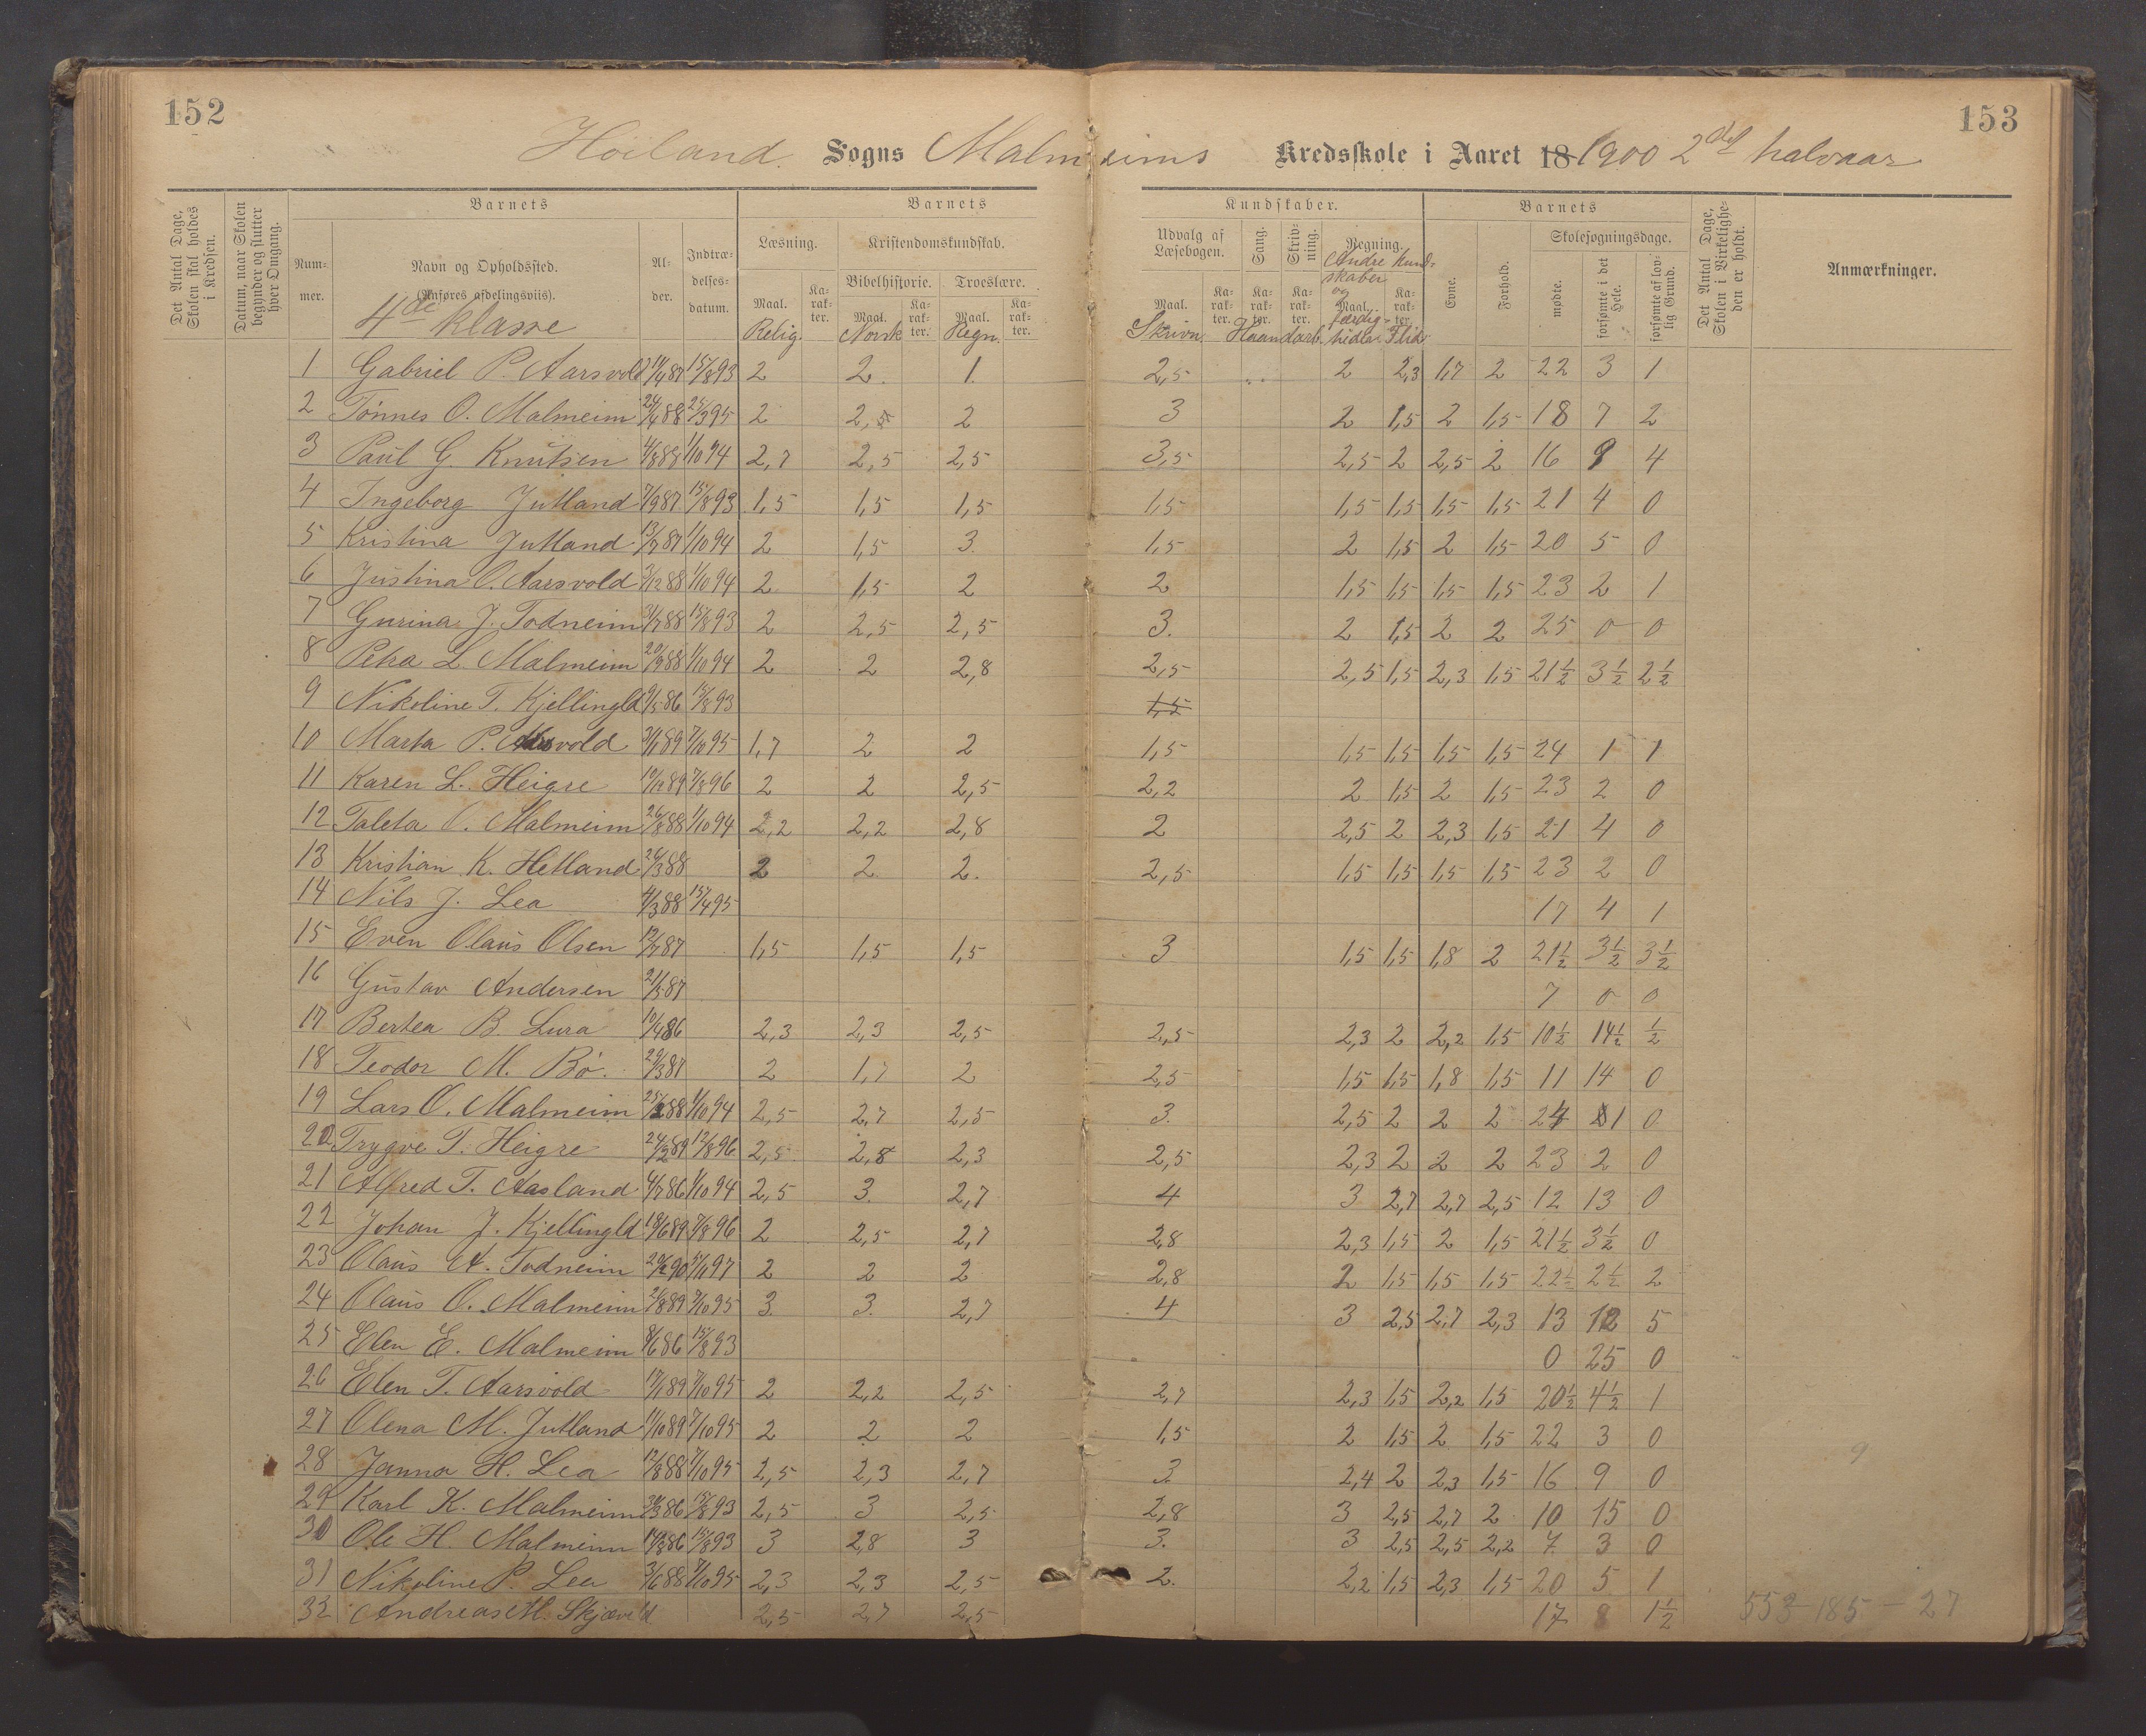 152
153
Höiland Sogns Malmeims Kredsskole i Aaret 18 1900 2det halvaar
Det Antal Dage, Skolen skal holdes i Kredsen.
Datum, naar Skolen begynder og slutter hver Omgang.
Barnets
Nummer.
Navn og Opholdssted. (Anføres afdelingsviis).
4de klasse
Alder.
Indtrædelsesdatum.
Barnets
Læsning.
Maal.
Karakter.
Relig.
Kristendomskundskab.
Bibelhistorie.
Maal.
Karakter.
Norsk
Troeslære.
Maal.
Karakter.
Regn.
Kundskaber.
Udvalg af Læsebogen.
Maal.
Karakter.
Skrivn.
Sang.
Karakter.
Skrivning.
Karakter.
Haandarb.
Regning.
Maal.
Karakter.
Andre kundskaber og færdigheder
Flid
Barnets
Evne.
Forhold.
Skolesøgningsdage.
mødte.
forsømte i det Hele.
forsømte af lovlig Grund.
Det Antal Dage, Skolen i Virkeligheden er holdt.
Anmærkninger.
1 Gabriel P. Aarsvold 19/4 87 15/8 93 2 2. 1. 2,5 2 2,3 1,7 2 22 3 1
2 Tönnes O. Malmeim 24/4 88 25/3 95 2 2,5 2 3 2 1,5 2 1,5 18 7 2
3 Paul G. Knutsen 4/8 88 1/10 94 2,7 2,5 2,5 3,5 2,5 2 2,5 2 16 9 4
4 Ingeborg Jutland 7/9 87 15/8 93 1,5 1,5 1,5 1,5 1,5 1,5 1,5 1,5 21 4 0
5 Kristina Jutland 13/7 87 1/10 94 2 1,5 3. 1,5 2 1,5 2 1,5 20 5 0
6 Justina O. Aarsvold 3/12 88 1/10 94 2 1,5 2 2 1,5 1,5 1,5 1,5 23 2 1
7 Gurina J. Todneim 31/7 88 15/8 93 2 2,5 2,5 3. 2 1,5 2 2 25 0 0
8 Petra L. Malmeim 20/9 88 1/10 94 2 2 2,8 2,5 2,5 1,5 2,3 1,5 21½ 3½ 2½
9 Nikoline T. Kjellingld 9/5 86 15/8 93 1,5
10 Marta P. Aarsvold 3/1 89 7/10 95 1,7 2 2 1,5 1,5 1,5 1,5 1,5 24 1 1
11 Karen L. Heigre 10/12 89 7/8 96 2 2 2,5 2,2 2 1,5 2 1,5 23 2 0
12 Taleta O. Malmeim 26/8 88 1/10 94 2,2 2,2 2,8 2 2,5 2 2,3 1,5 21 4 0
13 Kristian K. Hetland 26/3 88 2 2 2. 2,5 1,5 1,5 1,5 1,5 23 2 0
14 Nils J. Lea 4/3 88 15/4 95 17 4 1
15 Even Olaus Olsen 12/7 87 1,5 1,5 1,5 3 1,5 1,5 1,8 2 21½ 3½ 3½
16 Gustav Andersen 21/5 87 7 0 0
17 Bertea B. Lura 10/4 86 2,3 2,3 2,5 2,5 2,3 2 2,2 1,5 10½ 14½ ½
18 Teodor M. Bö. 29/3 87 2 1,7 2 2,5 1,5 1,5 1,8 1,5 11 14 0
19 Lars O. Malmeim 25/2 88 1/10 94 2,5 2,7 2,5 3. 2,5 2 2 2 24 1 0
20 Trygve T. Heigre 24/2 89 12/8 96 2,5 2,8 2,3 2,5 2,3 2 2 2 23 2 0
21 Alfred T. Aasland 4/7 86 1/10 94 2,5 3. 2,7 4 3 2,7 2,7 2,5 12 13 0
22 Johan J. Kjellingld 18/6 89 7/8 96 2 2,5 2,7 2,8 2,3 1,5 2 1,5 21½ 3½ 0
23 Olaus A. Todneim 20/2 90 5/11 97 2 2 2 2,8 2 1,5 1,5 1,5 22½ 2½ 2
24 Olaus O. Malmeim 26/8 89 7/10 95 3. 3. 2,7 4 3 2,5 2,7 2,3 13 12 5
25 Elen E. Malmeim 8/6 86 15/8 93 0 25 0
26 Elen T. Aarsvold 17/1 89 7/10 95 2 2,2 2,5 2,7 2,3 1,5 2,2 1,5 20½ 4½ 1
27 Olena M. Jutland 11/10 89 7/10 95 2 2 2 1,5 2 1,5 2 1,5 22 3 0
28 Janna H. Lea 12/8 88 7/10 95 2,5 2,3 2,7 3. 2,4 2 2,3 1,5 16 9 0 9
29 Karl K. Malmeim 30/3 86 15/8 93 2,5 3 2,5 2,8 3 2,5 2,7 2 10 15 0
30 Ole H. Malmeim 14/8 86 15/8 93 3 2,8 3 3. 3 2,5 2,5 2,2 7 3 0
31 Nikoline P. Lea 3/6 88 7/10 95 2,3 2,3 2,5 2. 2,2 1,5 2,3 1,5 20 5 1
32 Andreas M. Skjæveld 2,5 2,7 2,5 17 8 1½ 553 - 185 - 27